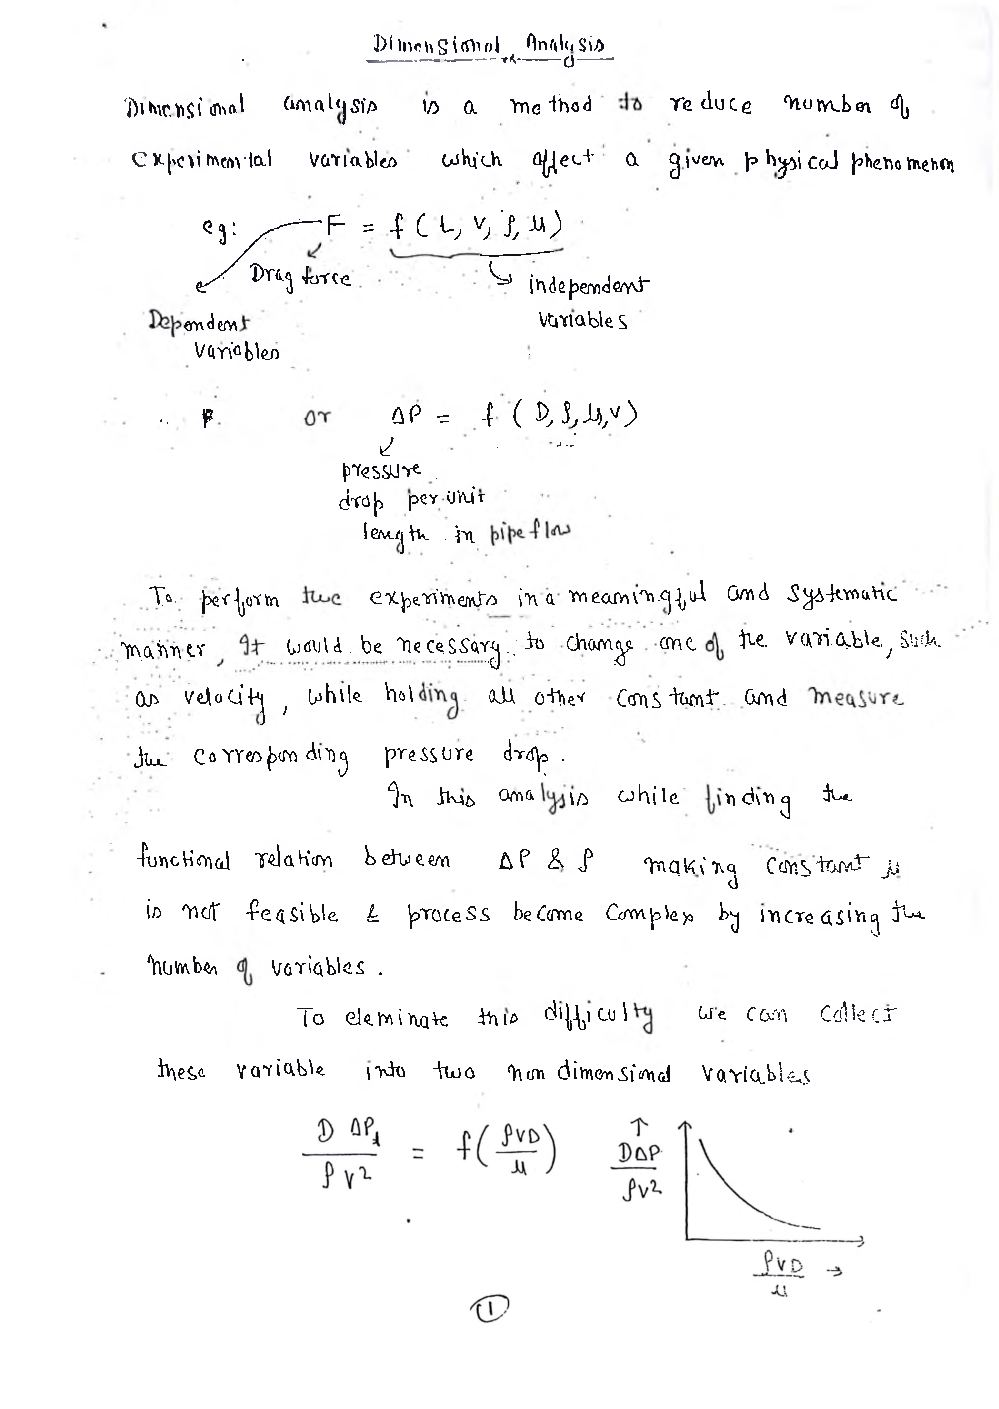 Dimensional Analysis
Dimensional analysis is a method to reduce number of
experimental variables which affect a given physical phenomenon
eg: F = f ( L, V, ρ, μ )
Drag force
independent
variables
Dependent
variables
F. or ΔP = f ( D, ρ, μ, v )
pressure
drop per unit
length in pipe flow
To perform the experiments in a meaningful and systematic
manner, It would be necessary to change one of the variable, such
as velocity, while holding all other constant and measure
the corresponding pressure drop.
In this analysis while finding the
functional relation between ΔP & ρ making constant μ
is not feasible & process become complex by increasing the
number of variables.
To eleminate this difficulty we can collect
these variable into two non dimensional variables
D ΔP / ρ V² = f ( ρVD / μ )
DΔP / ρV²
ρVD / μ →
1